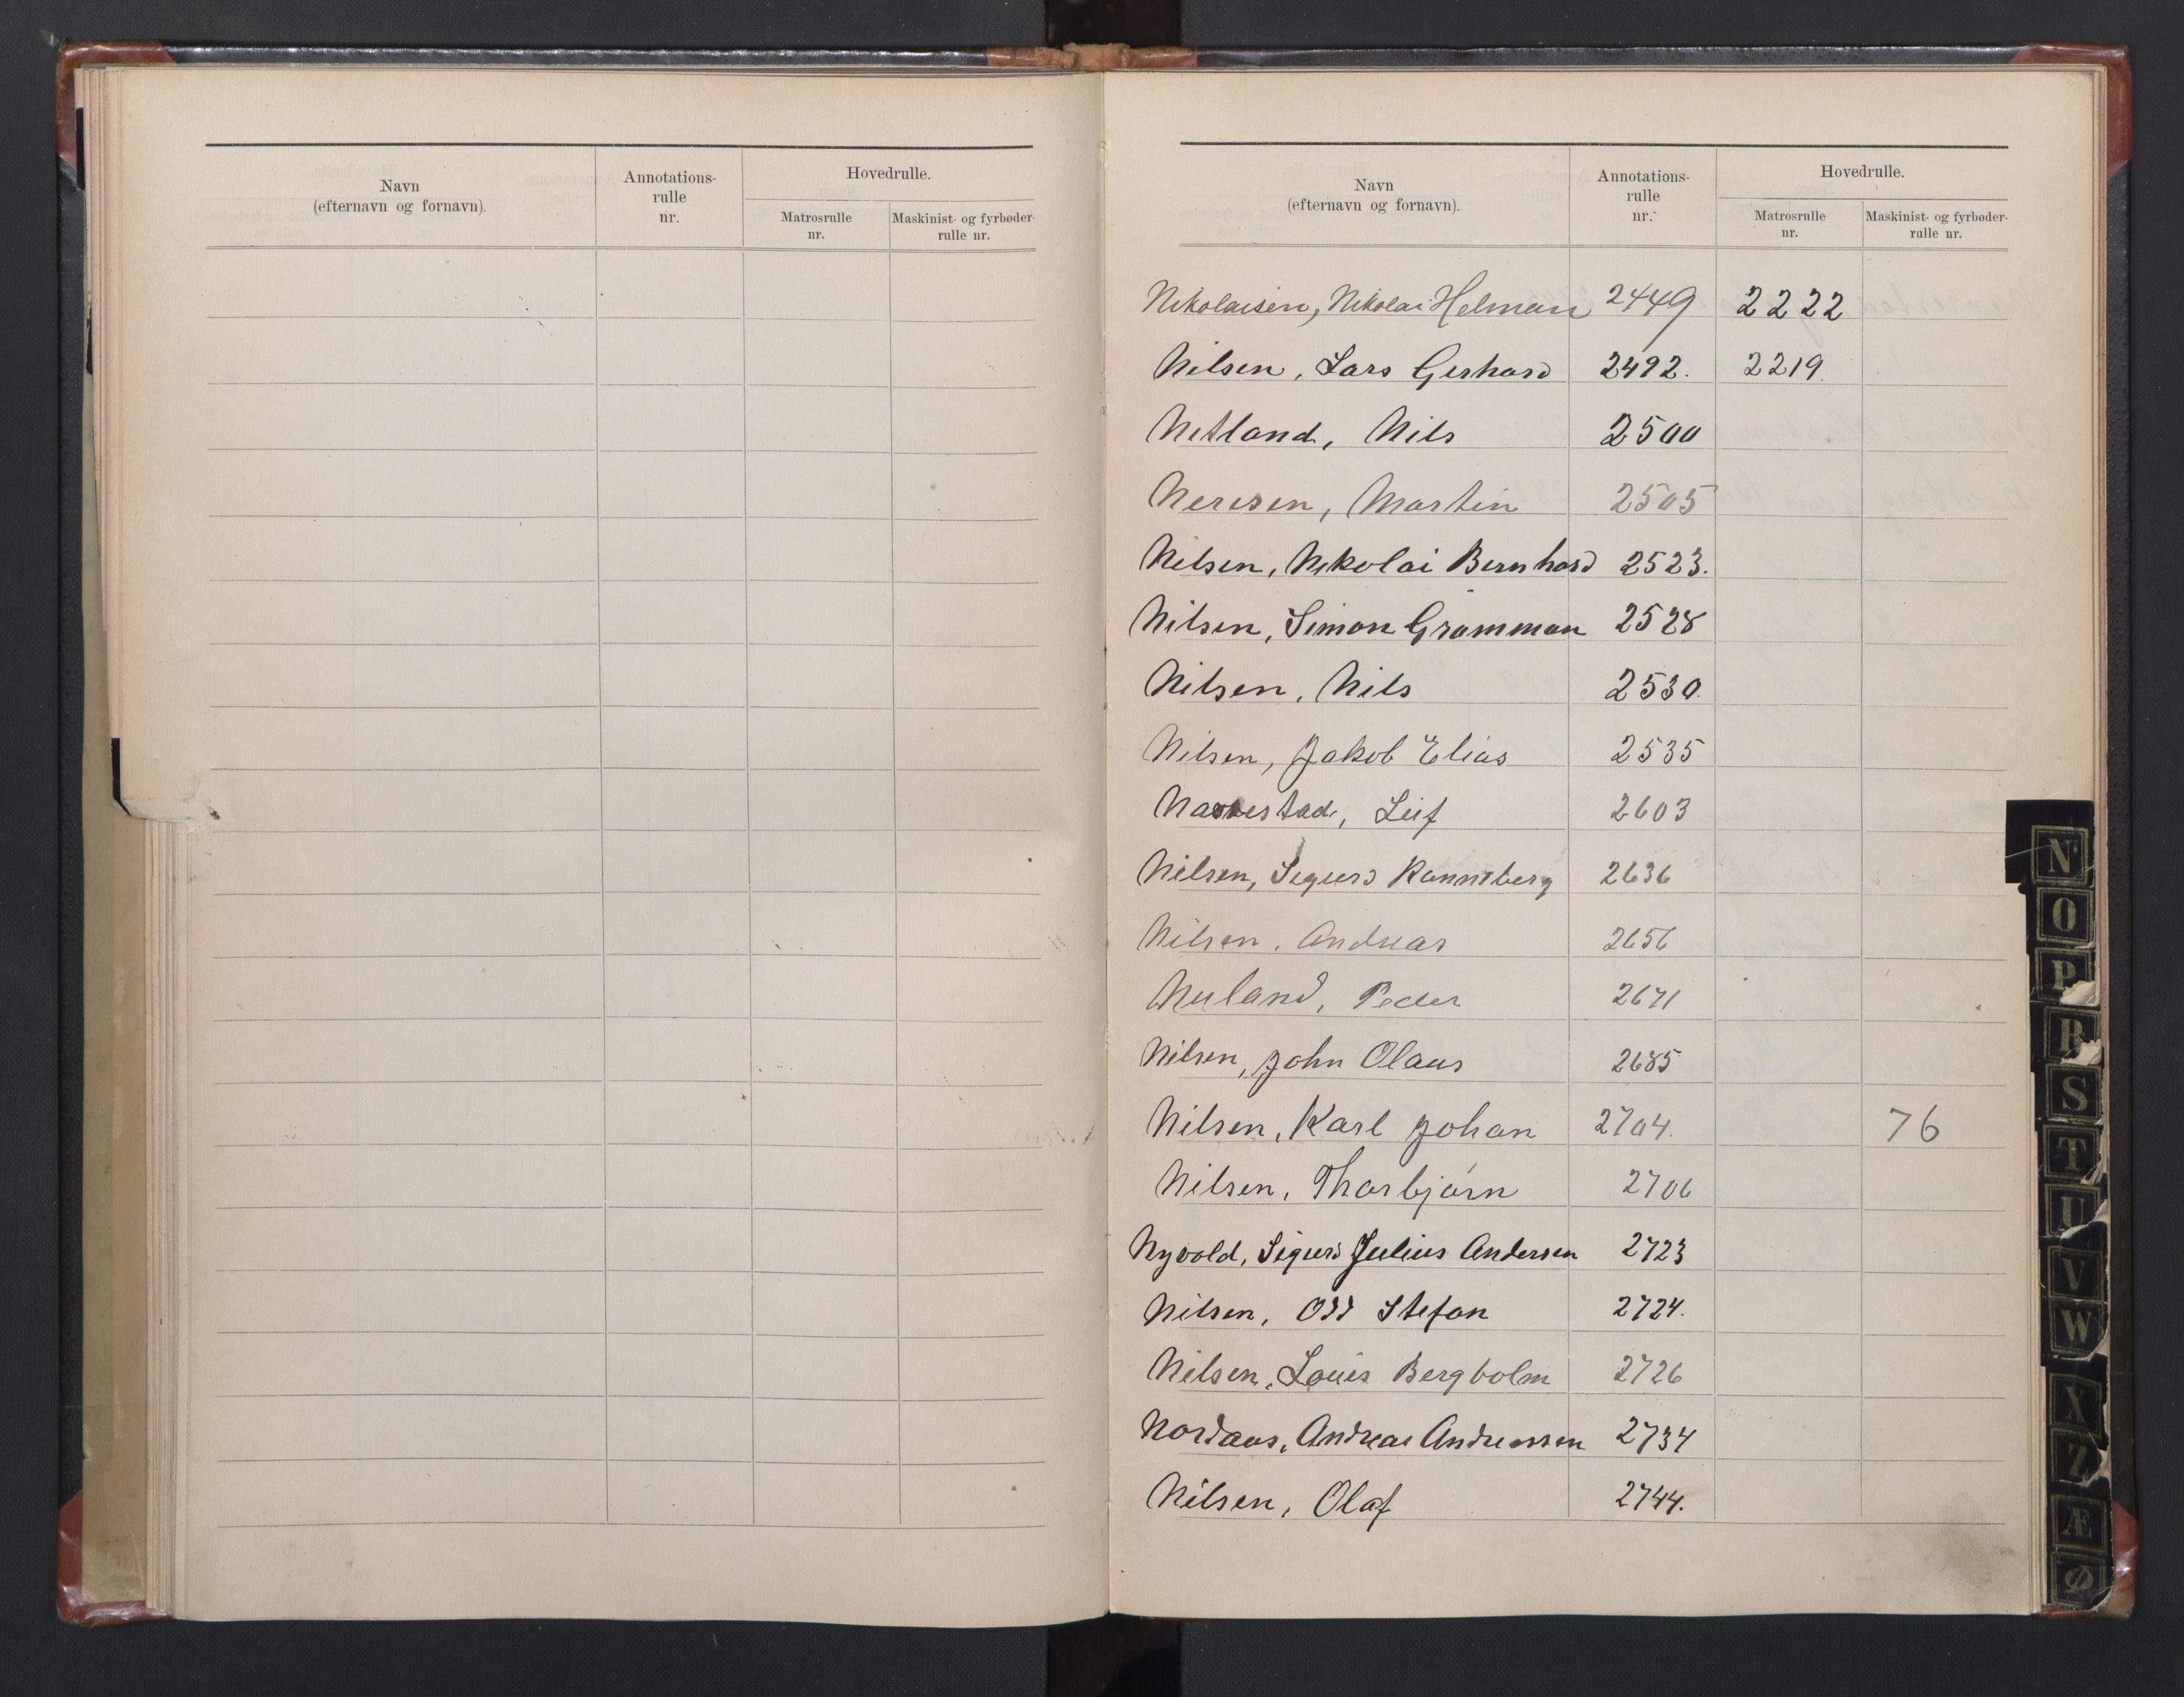 Navn
(efternavn og fornavn).
Annotations-
rulle
nr.
Hovedrulle.
Matrosrulle
nr.
Maskinist- og fyrbøder-
rulle nr.
Navn
(efternavn og fornavn).
Annotations-
rulle
nr.
Hovedrulle.
Matrosrulle
nr.
Maskinist- og fyrbøder-
rulle nr.
Nikolaisen, Nikolai Helman 2449 2222
Nilsen, Lars Gerhard 2492. 2219.
Netland, Nils 2500
Neresen, Martin 2505
Nilsen, Nikolai Bernhard 2523.
Nilsen, Simon Gramman 2528
Nilsen, Nils 2530.
Nilsen, Jakob Elias 2535
Leif 2603
Nilsen, Sigurd Ranneberg 2636
Nilsen, Andreas 2656
Nuland, Peder 2671
Nilsen, John Olaus 2685
Nilsen, Karl Johan 2704. 76
Nilsen, Thorbjørn 2706
Nyvold, Sigurd Julius Andersen 2723
Nilsen, Odd Stefan 2724.
Nilsen, Louis Bergholm 2726
Nordaas, Andreas Andreassen 2734
Nilsen, Olaf 2744.
N
O
P
R
S
T
U
V
W
X
Z
Æ
Ø